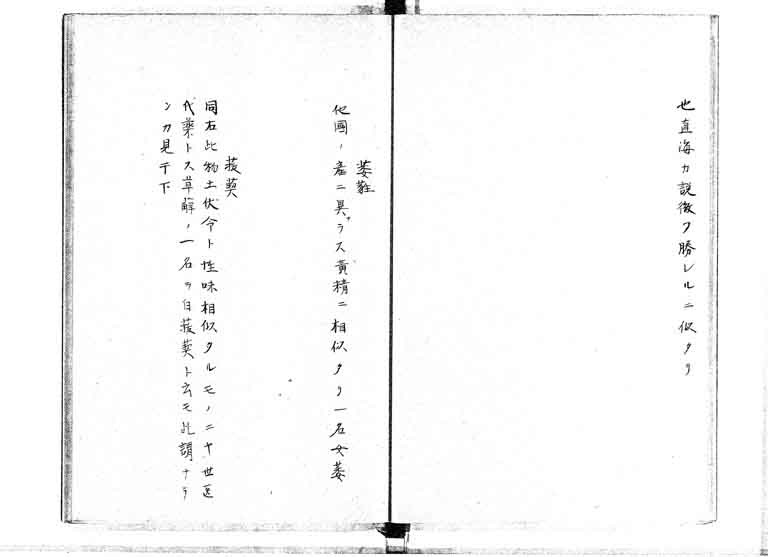 也直海カ説徴フ勝レルニ似タリ
萎蕤
他國ノ産ニ異ラス黄精ニ相似タリ一名女萎
菝葜
同右此物土伏令ト性味相似タルモノニヤ世医
代薬トス草薢ノ一名ヲ白菝葜ト云モ此謂ナラ
ンカ見于下